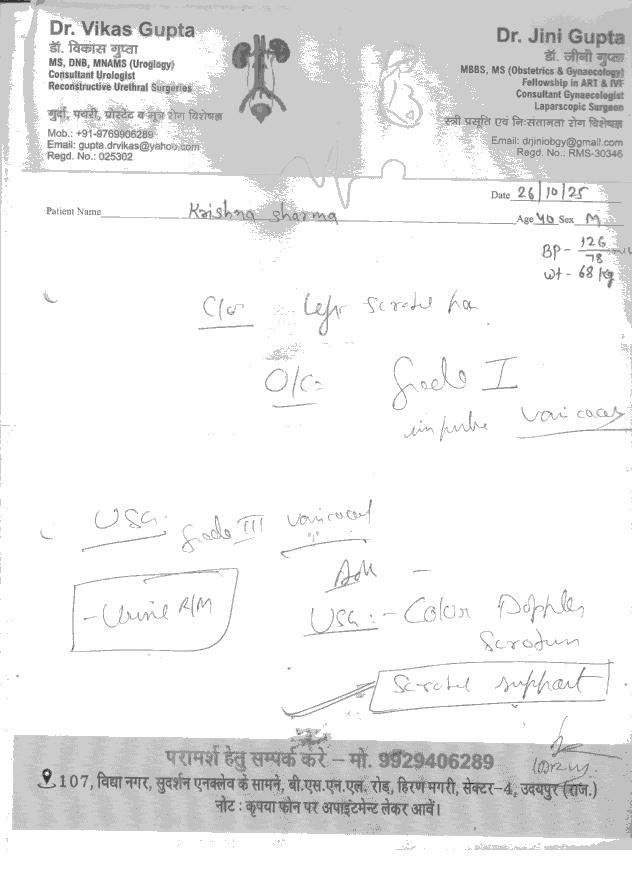 Dr. Vikas Gupta
डॉ. विकास गुप्ता
MS, DNB, MNAMS (Uroglogy)
Consultant Urologist
Reconstructive Urethral Surgeries
गुर्दा, पथरी, प्रोस्टेट व मूत्र रोग विशेषज्ञ
Mob.: +91-9769906289
Email: gupta.drvikas@yahoo.com
Regd. No.: 025302
Dr. Jini Gupta
डॉ. जीनी गुप्ता
MBBS, MS (Obstetrics & Gynaecology)
Fellowship in ART & IVF
Consultant Gynaecologist
Laparscopic Surgeon
स्त्री प्रसूति एवं निःसंतानता रोग विशेषज्ञ
Email: drjiniobgy@gmail.com
Regd. No.: RMS-30346
Date 26/10/25
Patient Name Krishna Sharma Age 40 Sex M
BP - 126/78
wt - 68 kg
C/o left scrotal
O/E Grade I
impulse varicocele
USG: Grade III varicocele
Adv -
- Urine R/M
USG:- Color Doppler
Scrotum
Scrotal support
परामर्श हेतु सम्पर्क करे – मो. 9929406289
107, विद्या नगर, सुदर्शन एनक्लेव के सामने, बी.एस.एन.एल. रोड, हिरण मगरी, सेक्टर-4, उदयपुर (राज.)
नोट : कृपया फोन पर अपाइंटमेन्ट लेकर आवें।